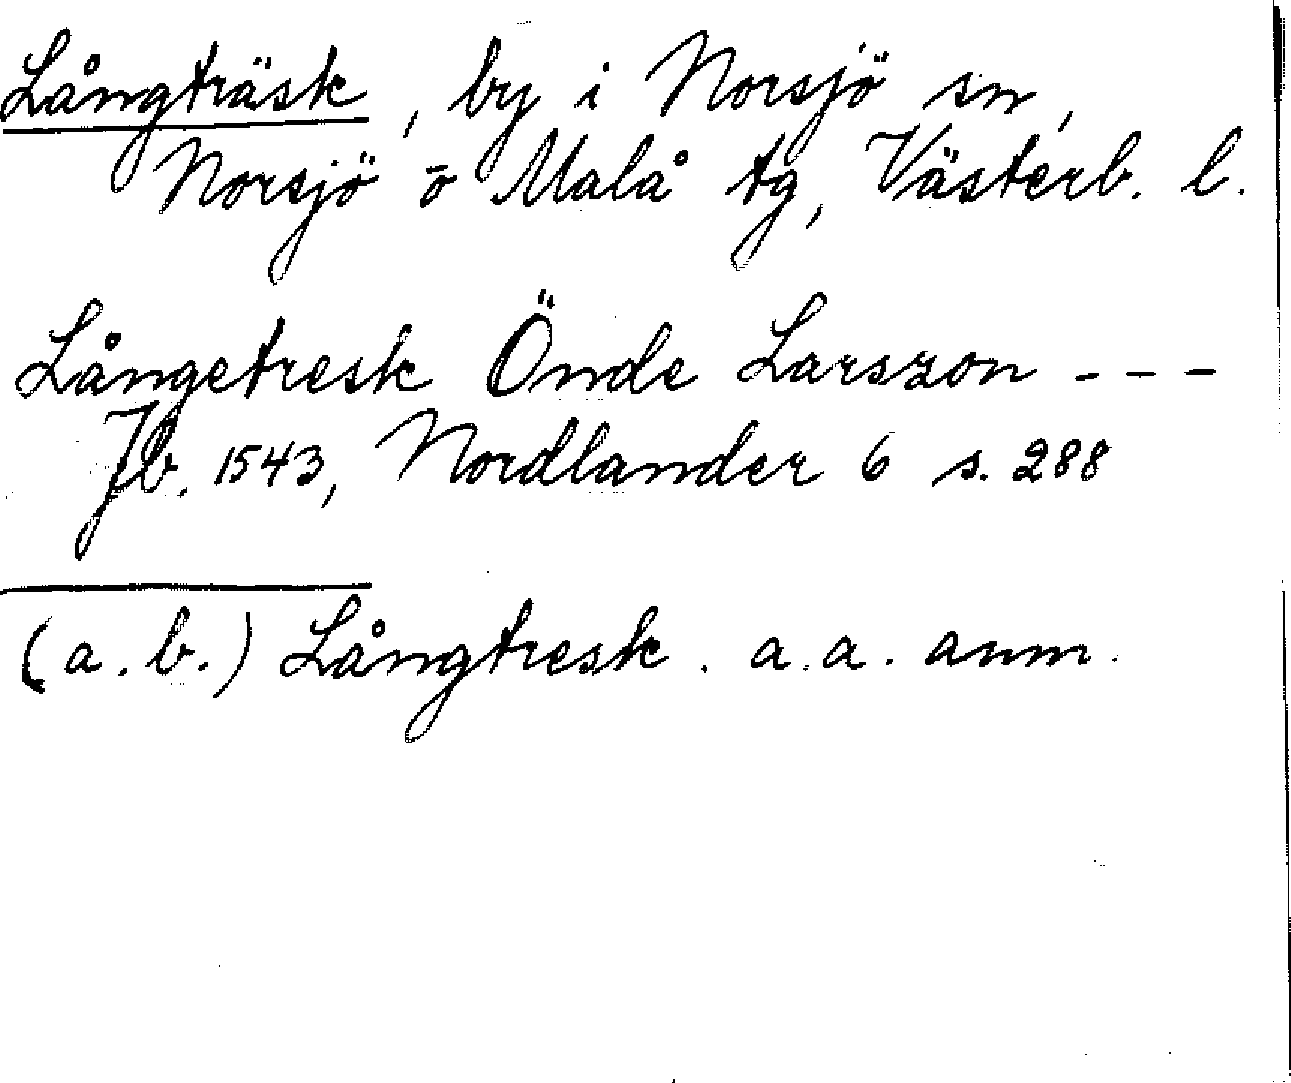 Långträsk, by i Norsjö sn,
Norsjö o Malå tg, Västerb. l.
Långetresk Önde Larszon - - -
Jb. 1543, Nordlander 6 s. 288
(a. b.) Långtresk. a. a. anm.